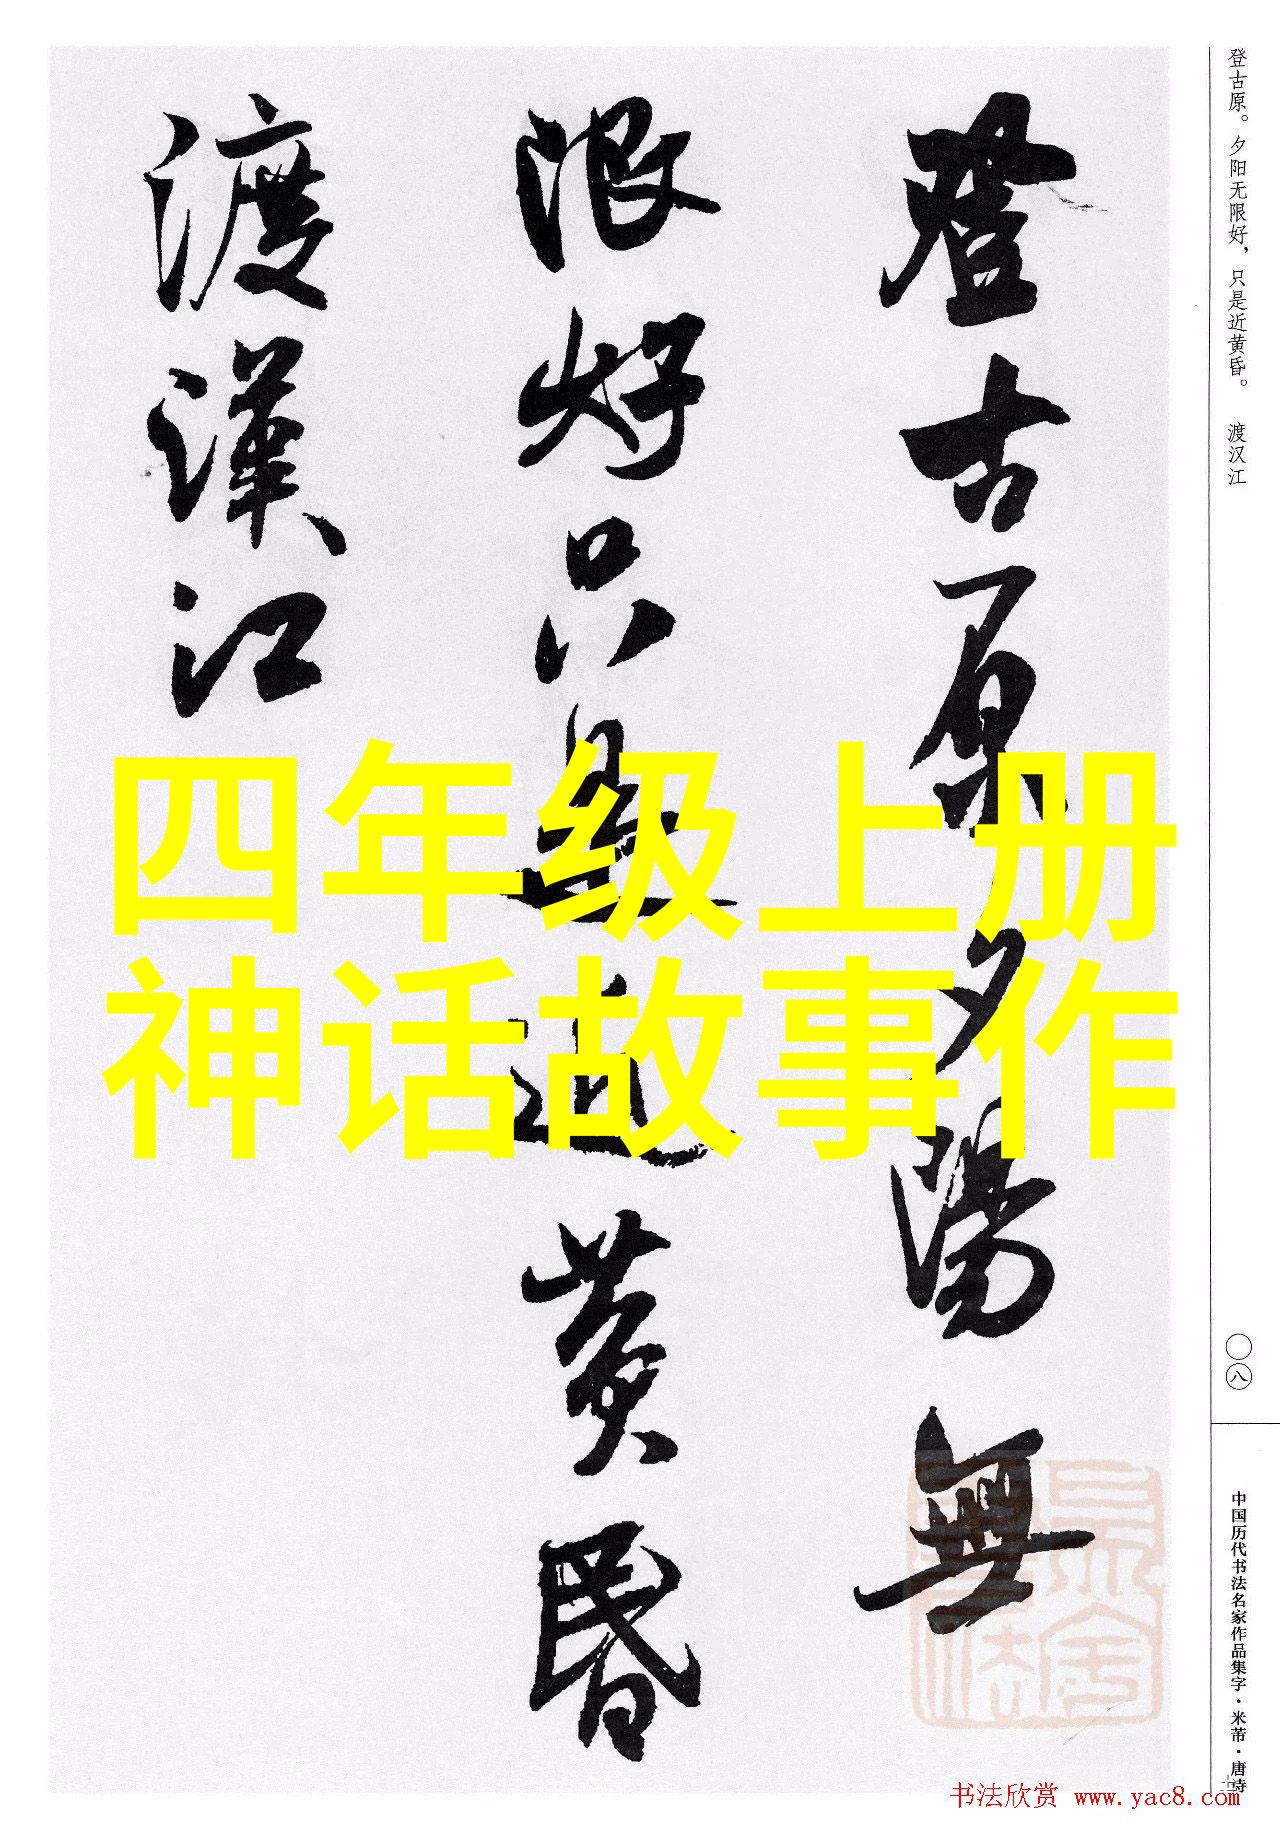 登古原夕陽無
限好只是近黄昏
渡漢江
四年级上册
神话故事作
登古原。夕阳无限好，只是近黄昏。 渡汉江
〇八
中国历代书法名家作品集字·米芾·唐诗
书法欣赏 www.yac8.com